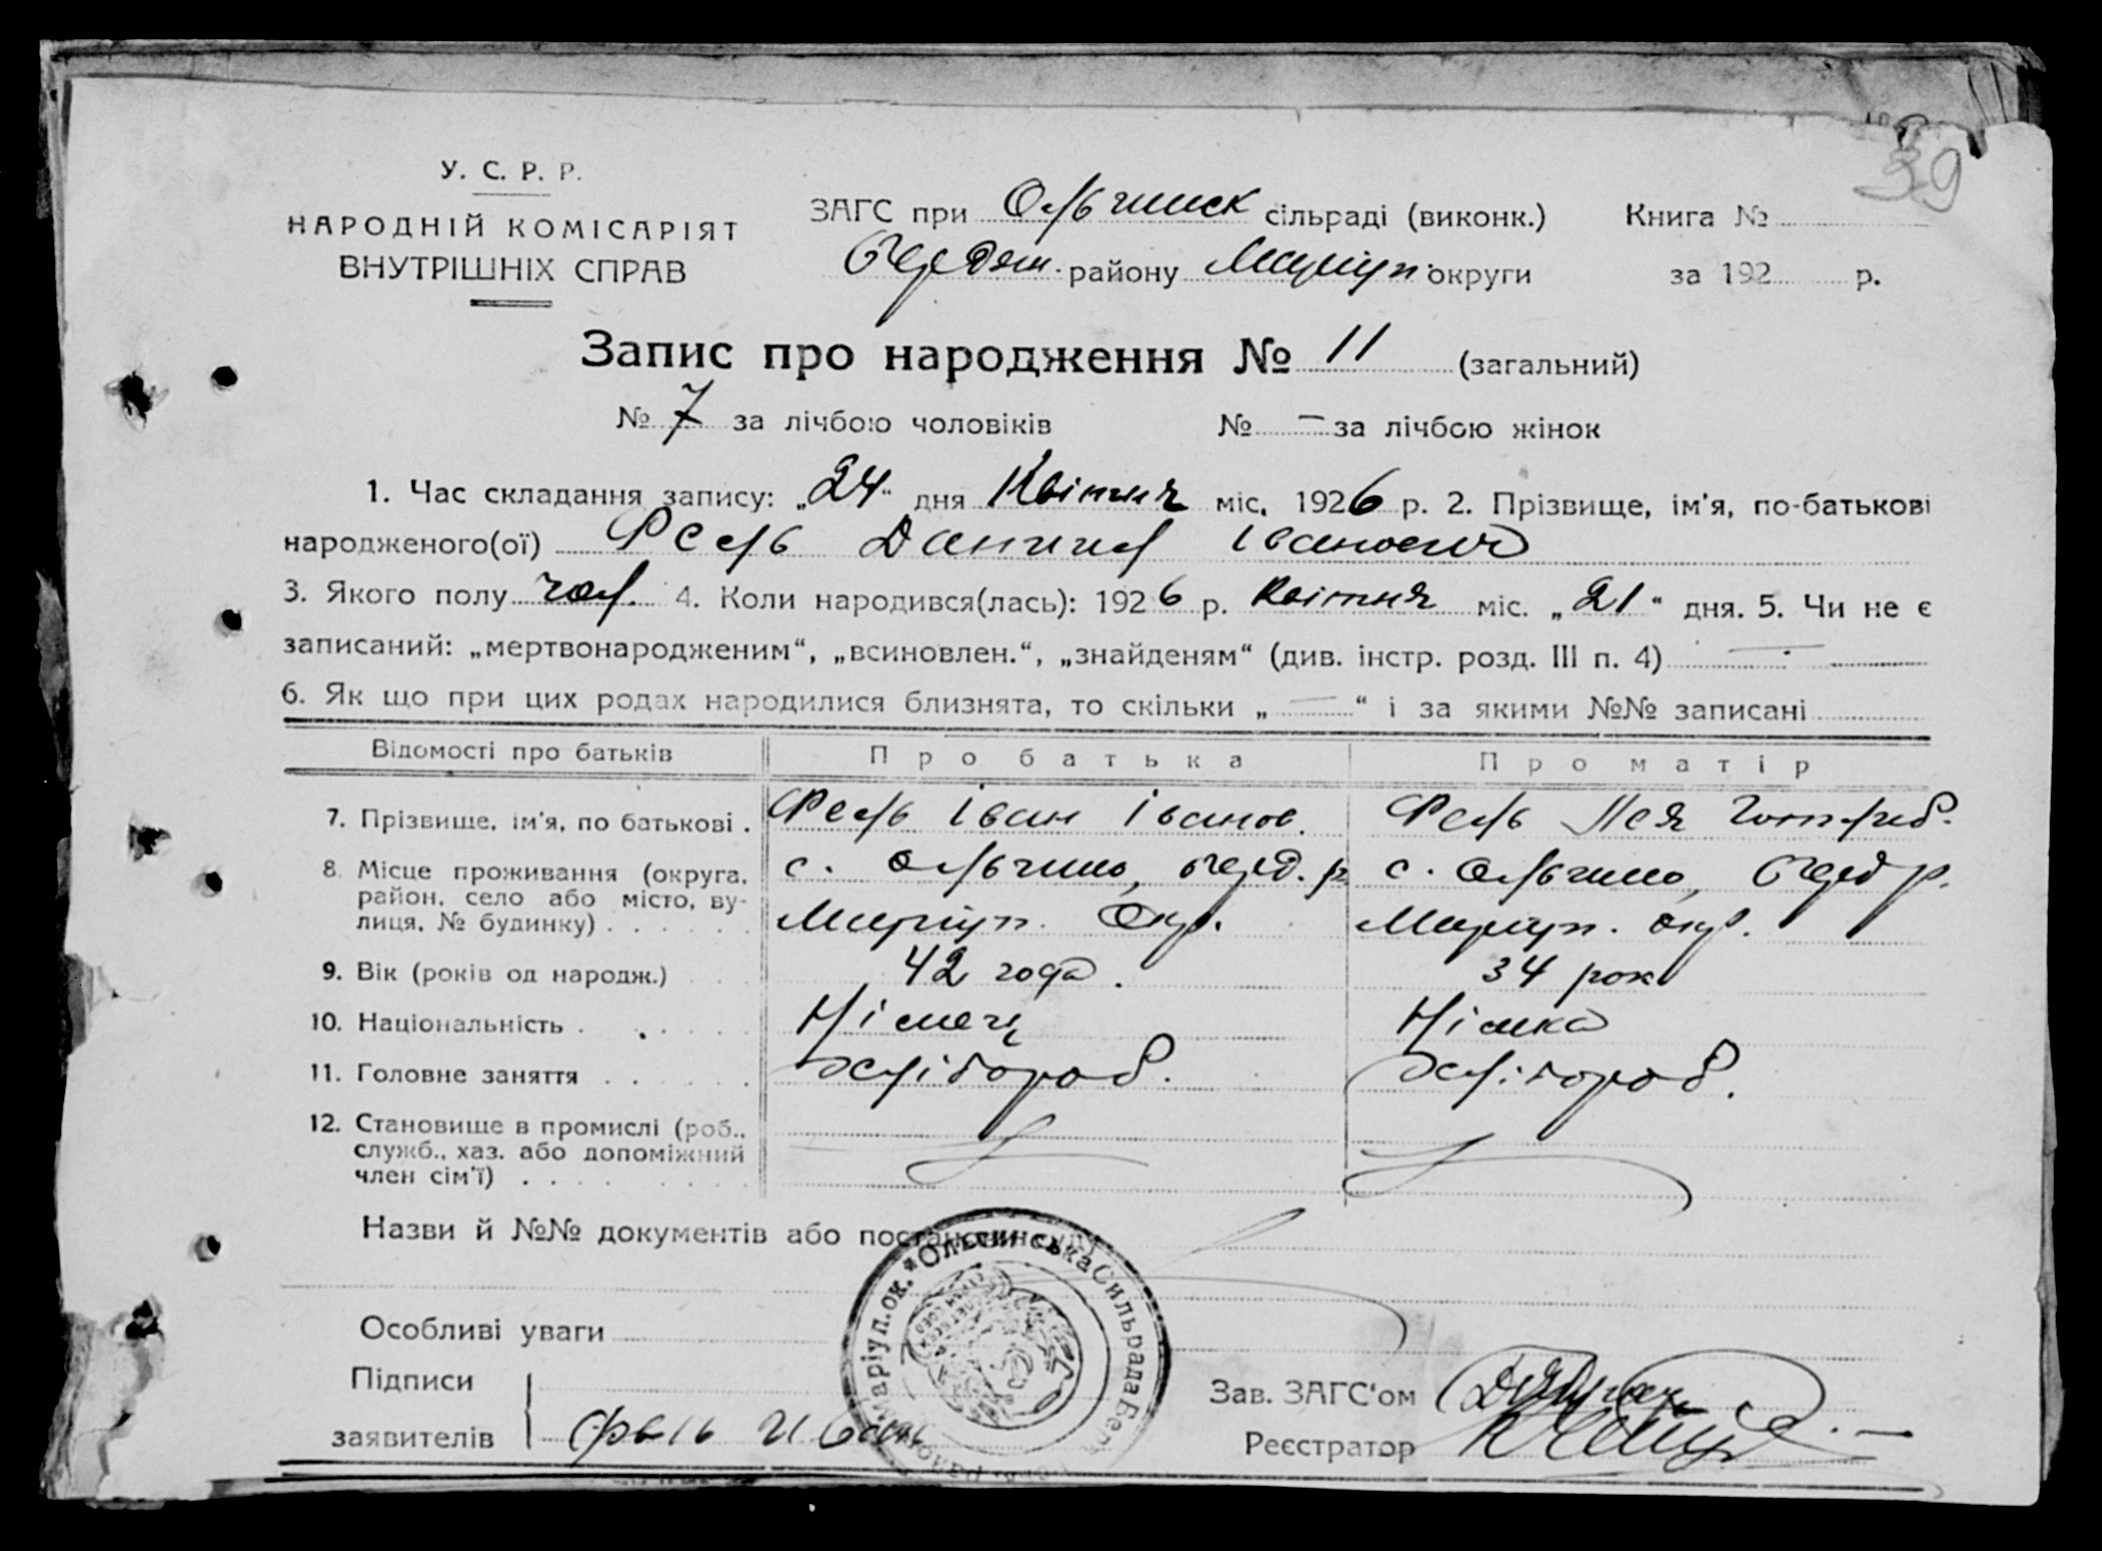 39
У. С. Р. Р.
НАРОДНІЙ КОМІСАРІЯТ
ВНУТРІШНІХ СПРАВ
ЗАГС при Ольгинск сільраді (виконк.)
району Маріуп. округи
Книга №
за 192 р.
Запис про народження № 11 (загальний)
№ 7 за лічбою чоловіків № — за лічбою жінок
1. Час складання запису: „24“ дня Квітня міс. 1926 р. 2. Прізвище, ім'я, по-батькові
народженого(ої) Фель Даниил Іванович
3. Якого полу чол. 4. Коли народився(лась): 1926 р. Квітня міс. „21“ дня. 5. Чи не є
записаний: „мертвонародженим“, „всиновлен.“, „знайденям“ (див. інстр. розд. III п. 4) —
6. Як що при цих родах народилися близнята, то скільки „—“ і за якими №№ записані
Відомості про батьків Про батька Про матір
7. Прізвище, ім'я, по батькові . Фель Іван Іванов. Фель Готфрид.
8. Місце проживання (округа, район, село або місто, вулиця, № будинку) . . . . . .
с. Ольгино, р.
Маріуп. Окр.
с. Ольгино, р.
Маріуп. окр.
9. Вік (років од народж.) 42 года. 34 рок
10. Національність . Німець Німка
11. Головне заняття . . . . . Хлібороб. Хлібороб.
12. Становище в промислі (роб., служб., хаз. або допоміжний член сім'ї) . . . .
Назви й №№ документів або
Маріуп. ок. * Ольгинська Сильрада
Особливі уваги
Підписи
заявителів Фель Иван
Зав. ЗАГС'ом
Реєстратор